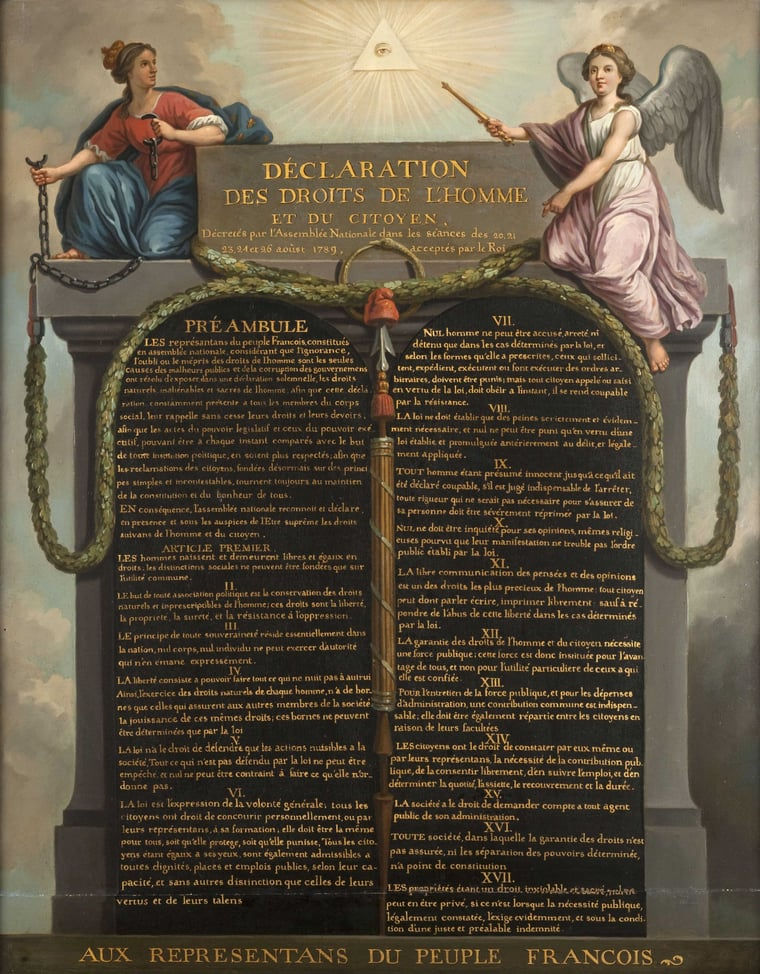 DÉCLARATION
DES DROITS DE L'HOMME
ET DU CITOYEN,
Décretés par l'Assemblée Nationale dans les séances des 20, 21
23, 24 et 26 août 1789, acceptés par le Roi
PRÉAMBULE
LES représantans du peuple Francois, constitués
en assemblée nationale, considérant que l'ignorance,
l'oubli ou le mépris des droits de l'homme sont les seules
causes des malheurs publics et de la corruption des gouvernemens
ont résolu d'exposer dans une déclaration solemnelle, les droits
naturels, inaliénables et sacrés de l'homme; afin que cette décla
ration, constamment présente a tous les membres du corps
social, leur rappelle sans cesse leurs droits et leurs devoirs;
afin que les actes du pouvoir legislatif et ceux du pouvoir exé
cutif, pouvant être a chaque instant comparés avec le but
de toute institution politique, en soient plus respectés; afin que
les reclamations des citoyens, fondées désormais sur des princi
pes simples et incontestables, tournent toujours au maintien
de la constitution et du bonheur de tous.
EN conséquence, l'assemblée nationale reconnoit et déclare,
en presence et sous les auspices de l'Etre suprême les droits
suivans de l'homme et du citoyen,
ARTICLE PREMIER.
LES hommes naissent et demeurent libres et égaux en
droits, les distinctions sociales ne peuvent être fondées que sur
l'utilité commune.
II.
LE but de toute association politique est la conservation des droits
naturels et inprescriptibles de l'homme; ces droits sont la liberté,
la propriété, la sureté, et la résistance à l'oppression.
III.
LE principe de toute souveraineté réside essentiellement dans
la nation, nul corps, nul individu ne peut exercer d'autorité
qui n'en émane expressément.
IV
LA liberté consiste a pouvoir faire tout ce qui ne nuit pas à autrui
Ainsi, l'exercice des droits naturels de chaque homme, n'a de bor-
nes que celles qui assurent aux autres membres de la société
la jouissance de ces mêmes droits; ces bornes ne peuvent
être déterminées que par la loi
V.
LA loi n'a le droit de défendre que les actions nuisibles a la
société, Tout ce qui n'est pas défendu par la loi ne peut être
empêché, et nul ne peut être contraint à faire ce qu'elle n'or-
donne pas.
VI.
LA loi est l'expression de la volonté générale; tous les
citoyens ont droit de concourir personnellement, ou par
leurs représentans, à sa formation; elle doit être la même
pour tous, soit qu'elle protege, soit qu'elle punisse, Tous les cito
yens étant égaux à ses yeux, sont également admissibles a
toutes dignités, places et emplois publics, selon leur ca-
pacité, et sans autres distinction que celles de leurs
vertus et de leurs talens
VII.
NUL homme ne peut être accusé, arreté, ni
détenu que dans les cas déterminés par la loi, et
selon les formes qu'elle a prescrites, ceux qui sollici-
tent, expédient, exécutent ou font exécuter des ordres ar-
bitraires, doivent être punis; mais tout citoyen appelé ou saisi
en vertu de la loi, doit obéir a l'instant, il se rend coupable
par la résistance.
VIII.
LA loi ne doit établir que des peines strictement et évidem-
ment nécessaire, et nul ne peut être puni qu'en vertu d'une
loi établie et promulguée antérierement au délit, et légale-
ment appliquée.
IX.
TOUT homme étant présumé innocent jusqu'a ce qu'il ait
été déclaré coupable, s'il est jugé indispensable de l'arrêter,
toute rigueur qui ne serait pas nécessaire pour s'assurer de
sa personne doit être sévérement réprimée par la loi.
X.
NUL ne doit être inquiété pour ses opinions, mêmes religi-
euses pourvu que leur manifestation ne trouble pas l'ordre
public établi par la loi.
XI.
LA libre communication des pensées et des opinions
est un des droits les plus precieux de l'homme: tout citoyen
peut dont parler écrire, imprimer librement: sauf à ré-
pondre de l'abus de cette liberté dans les cas déterminés
par la loi.
XII.
LA garantie des droits de l'homme et du citoyen nécessite
une force publique: cette force est donc instituée pour l'avan-
tage de tous, et non pour l'utilité particuliere de ceux a qui
elle est confiée.
XIII.
POUR l'entretien de la force publique, et pour les dépenses
d'administration, une contribution commune est indispen-
sable; elle doit être également répartie entre les citoyens en
raison de leurs facultées
XIV.
LES citoyens ont le droit de constater par eux même ou
par leurs représentans, la nécessité de la contribution pub-
lique, de la consentir librement, d'en suivre l'emploi, et d'en
déterminer la quotité, l'assiette, le recouvrement et la durée.
XV.
LA société a le droit de demander compte a tout agent
public de son administration.
XVI.
TOUTE société, dans laquelle la garantie des droits n'est
pas assurée, ni les séparation des pouvoirs déterminée,
n'a point de constitution
XVII.
LES propriétés étant un droit inviolable et sacré, nul ne
peut en être privé, si ce n'est lorsque la nécessité publique,
légalement constatée, l'exige evidemment, et sous la condi-
tion d'une juste et préalable indemnité.
AUX REPRESENTANS DU PEUPLE FRANCOIS